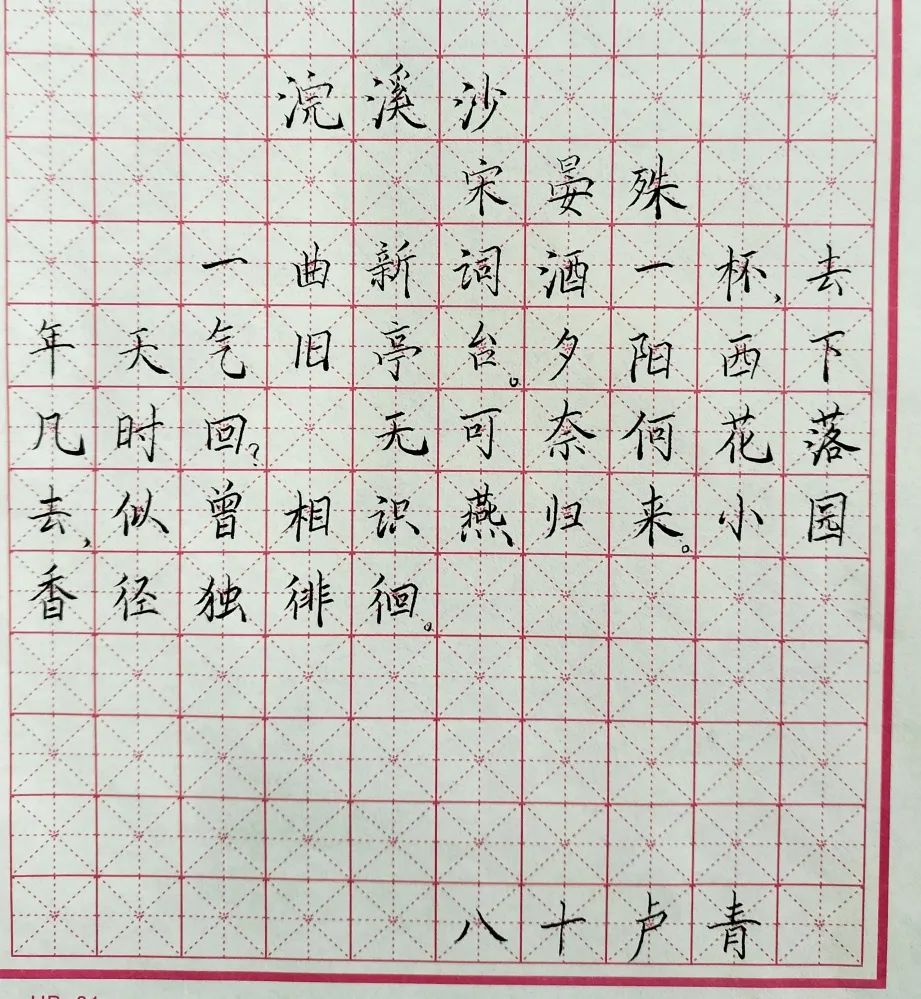 浣溪沙
宋晏殊
一曲新词酒一杯,去
年天气旧亭台。夕阳西下
几时回?无可奈何花落
去,似曾相识燕归来。小园
香径独徘徊。
八十卢青